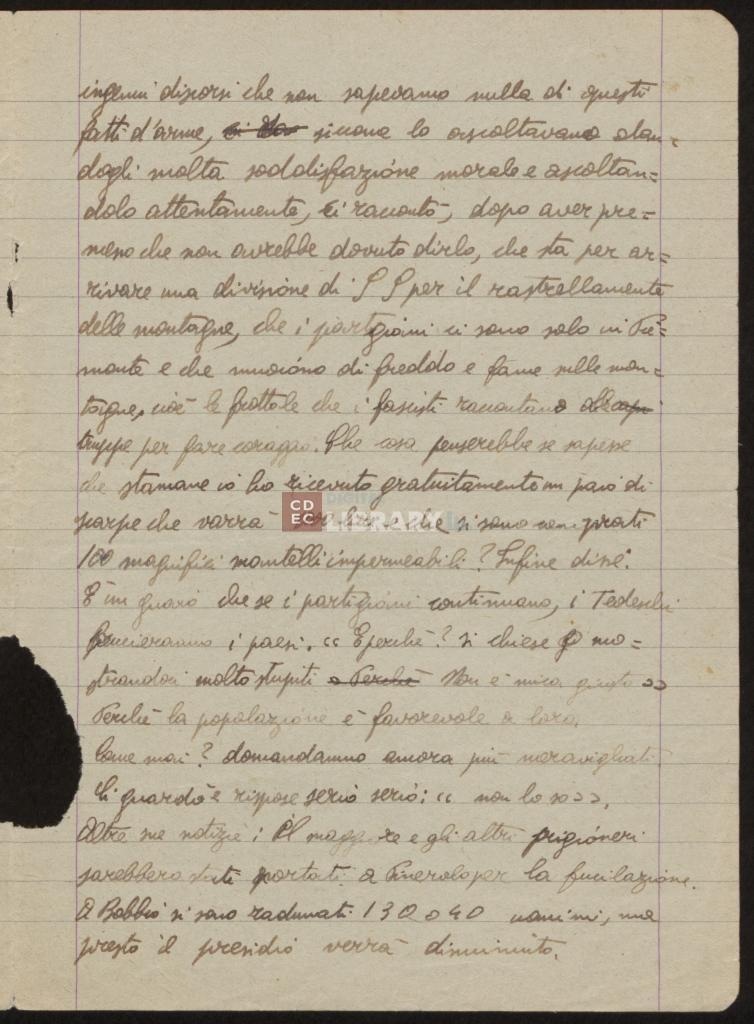 ingenui discorsi che non sapevamo nulla di questi
fatti d'arme, siccome lo ascoltavamo dan-
dogli molta soddisfazione morale e ascoltan=
dolo attentamente, ci raccontò, dopo aver pre=
messo che non avrebbe dovuto dirlo, che sta per ar=
rivare una divisione di SS per il rastrellamento
delle montagne, che i partigiani ci sono solo in Pie=
monte e che muoiono di freddo e fame nelle mon=
tagne, cioè le frottole che i fascisti raccontano alle
truppe per fare coraggio. Che cosa penserebbe se sapesse
che stamane io ho ricevuto gratuitamente un paio di
scarpe che varrà lire e che si sono
100 magnifici mantelli impermeabili? Infine disse:
È un guaio che se i partigiani continuano, i Tedeschi
bruceranno i paesi. « E perchè? si chiese mo=
strandoci molto stupiti Non è mica giusto »
Perchè la popolazione è favorevole a loro.
Come mai? domandammo ancora più meravigliati.
Ci guardò e rispose serio serio: « non lo so ».
Altre sue notizie: Il maggiore e gli altri prigionieri
sarebbero stati portati a Pinerolo per la fucilazione.
A Bobbio si sono radunati 130 o 40 uomini, ma
presto il presidio verrà diminuito.
CDEC DIGITAL LIBRARY.it